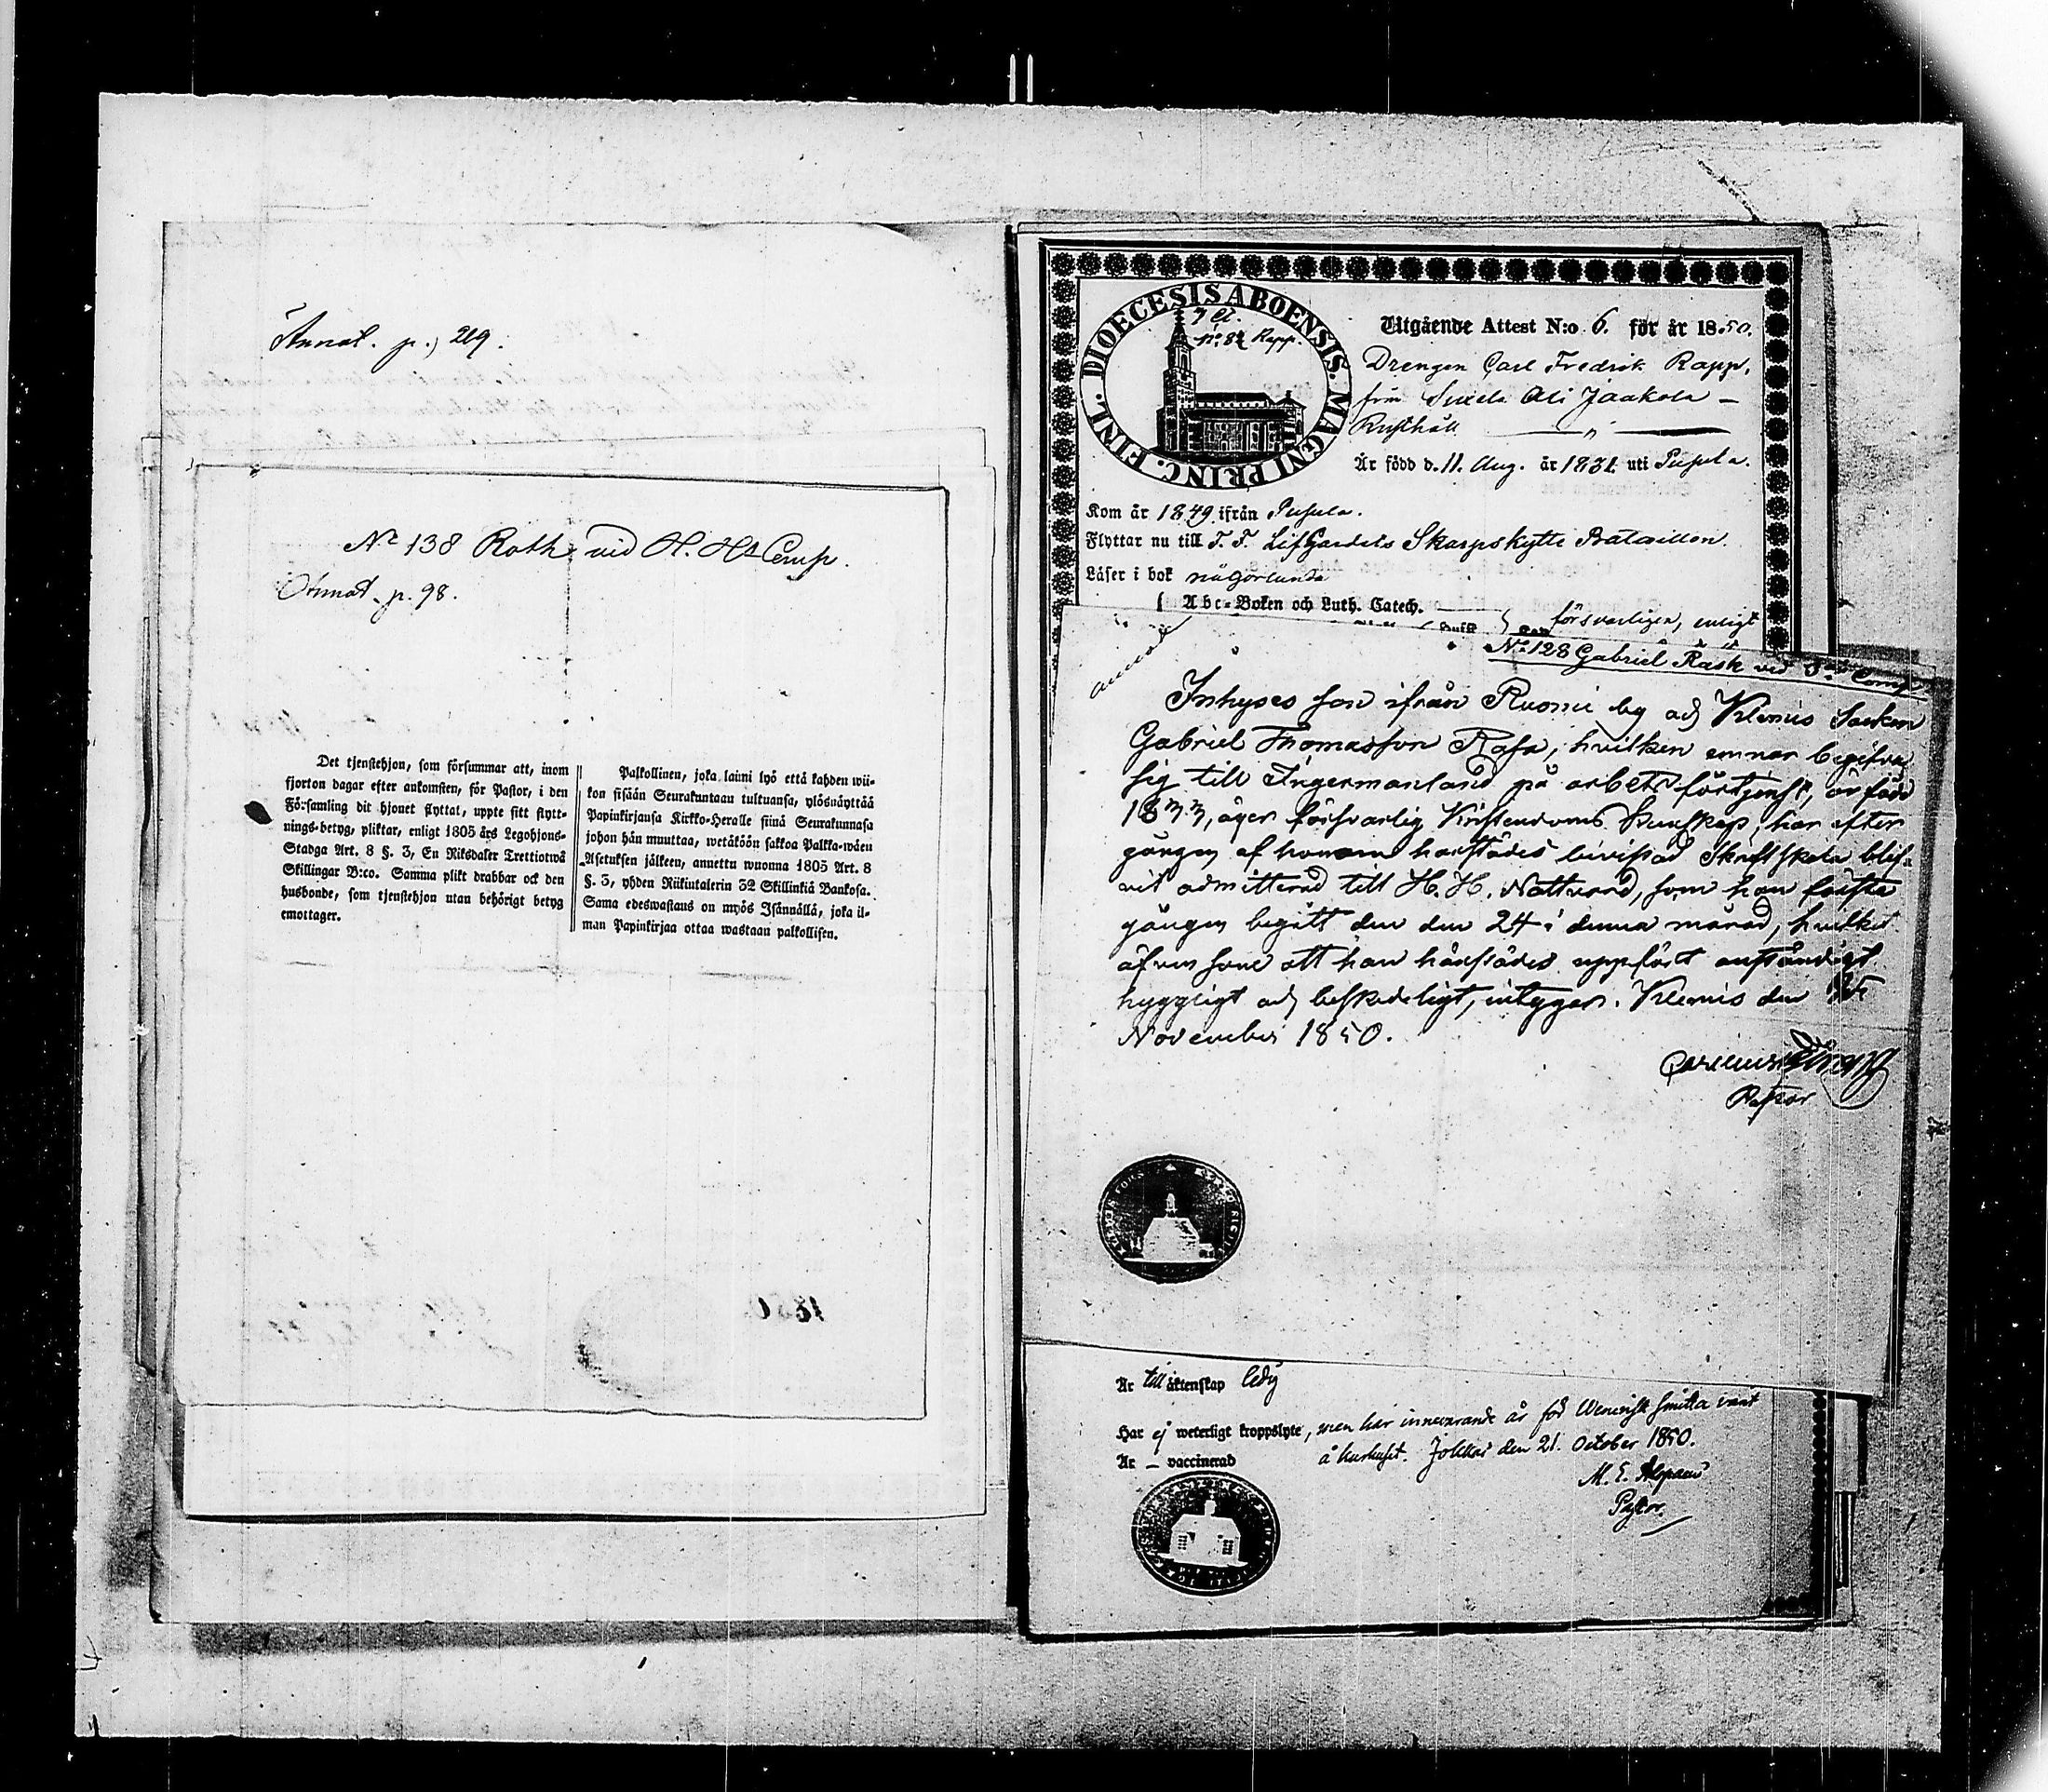 Annot. p. 219.
No 138 Roth vid H. Hs Comp.
Annot. p. 98.
Det tjenstehjon, som försummar att, inom
fjorton dagar efter ankomsten, för Pastor, i den
Församling dit hjonet flyttat, uppte sitt flytt-
nings-betyg, pliktar, enligt 1805 års Legohjons-
Stadga Art. 8 §. 3, En Riksdaler Trettiotwå
Skillingar B:co. Samma plikt drabbar ock den
husbonde, som tjenstehjon utan behörigt betyg
emottager.
Palkollinen, joka laimi lyö että kahden wii-
kon sisään Seurakuntaan tultuansa, ylösnäyttää
Papinkirjansa Kirkko-Heralle siinä Seurakunnasa
johon hän muuttaa, wetäköön sakkoa Palkka-wäen
Asetuksen jälkeen, annettu wuonna 1805 Art. 8
§. 3, yhden Riikintalerin 32 Skillinkiä Bankosa.
Sama edeswastaus on myös Isännällä, joka il-
man Papinkirjaa ottaa wastaan palkollisen.
DIOECESIS ABOENSIS. MAGNI PRINC. FINL.
No. 82 Rapp.
Utgående Attest N:o 6. för år 1850.
Drengen Carl Fredrik Rapp,
från Suxela Ali Jaakola –
Rusthåll
Är född d. 11. Aug. år 1831 uti Pusula.
Kom år 1849 ifrån Pusula.
Flyttar nu till F. F. LifGardets Skarpskytte Bataillon.
Läser i bok någorlunda
Abc-Boken och Luth. Catech.
försvarligen, enligt
No 128 Gabriel Rask vid Comp
Inhyses son ifrån by och Klemis Socken
Gabriel Thomasson Rosa, hvilken ernar begifva
sig till Ingermanland på arbetsförtjenst, är född
1833, äger försvarlig Kristendoms Kunskap, har efter
gången af honom härstädes bivistad Skriftskola blif-
vit admitterad till H. H. Nattvard, som han första
gången begått den den 24 i denna månad, hvilket
äfven som att han härstädes uppfört anständigt
hyggligt och beskedeligt, intygar. Klemis den
November 1850.
Pastor
Är till äktenskap ledig
Har ej weterligt kroppslyte, men har innevarande år för Venerisk smitta varit
Är – vaccinerad
å kurhuset. Jokkas den 21. October 1850.
M. E.
Pastor.